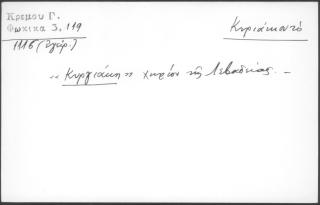 Κρεμου Γ.
Φωκικα 3, 119
1116 (ἔγγρ.)
Κυριάκου τὸ
« Κυργιάκη » χωρίον τῆς Λεβαδείας. –